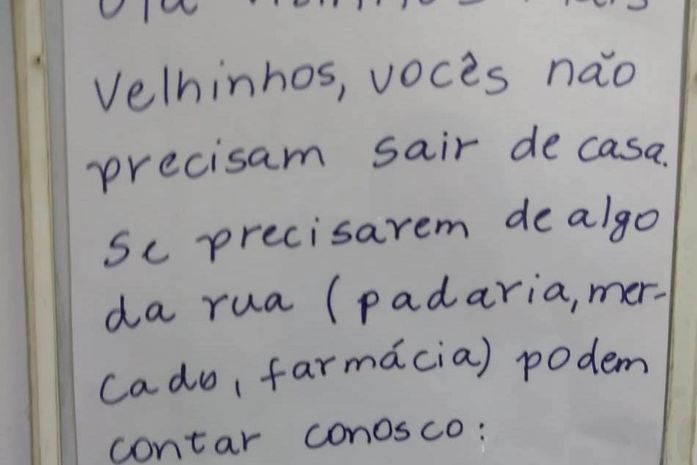 velhinhos, vocês não
precisam sair de casa.
Se precisarem de algo
da rua (padaria, mer-
cado, farmácia) podem
contar conosco: